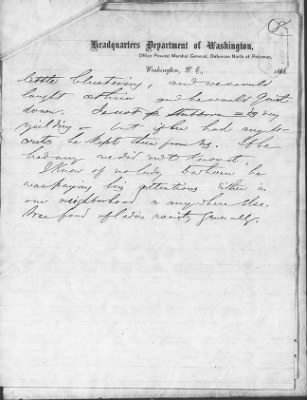 8
Headquarters Department of Washington,
Office Provost Marshal General, Defences North of Potomac,
Washington, D. C., 186
little blustering, and we would
laught at him and he would quiet
down. Is not stubborn is very
yielding - but if he had any
secrets he kept them from us. If he
had any we did not know it.
I know of no lady to whom he
was paying his attentions either in
our neighborhood or anywhere else.
Was fond of ladies society generally.